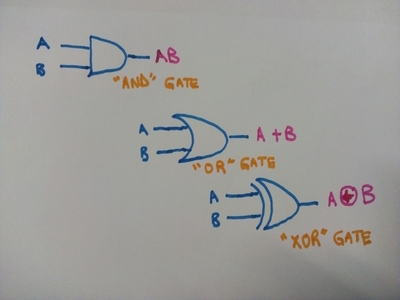 A
AB
B
"AND" GATE
A
A + B
B
"OR" GATE
A
A ⊕ B
B
"XOR" GATE